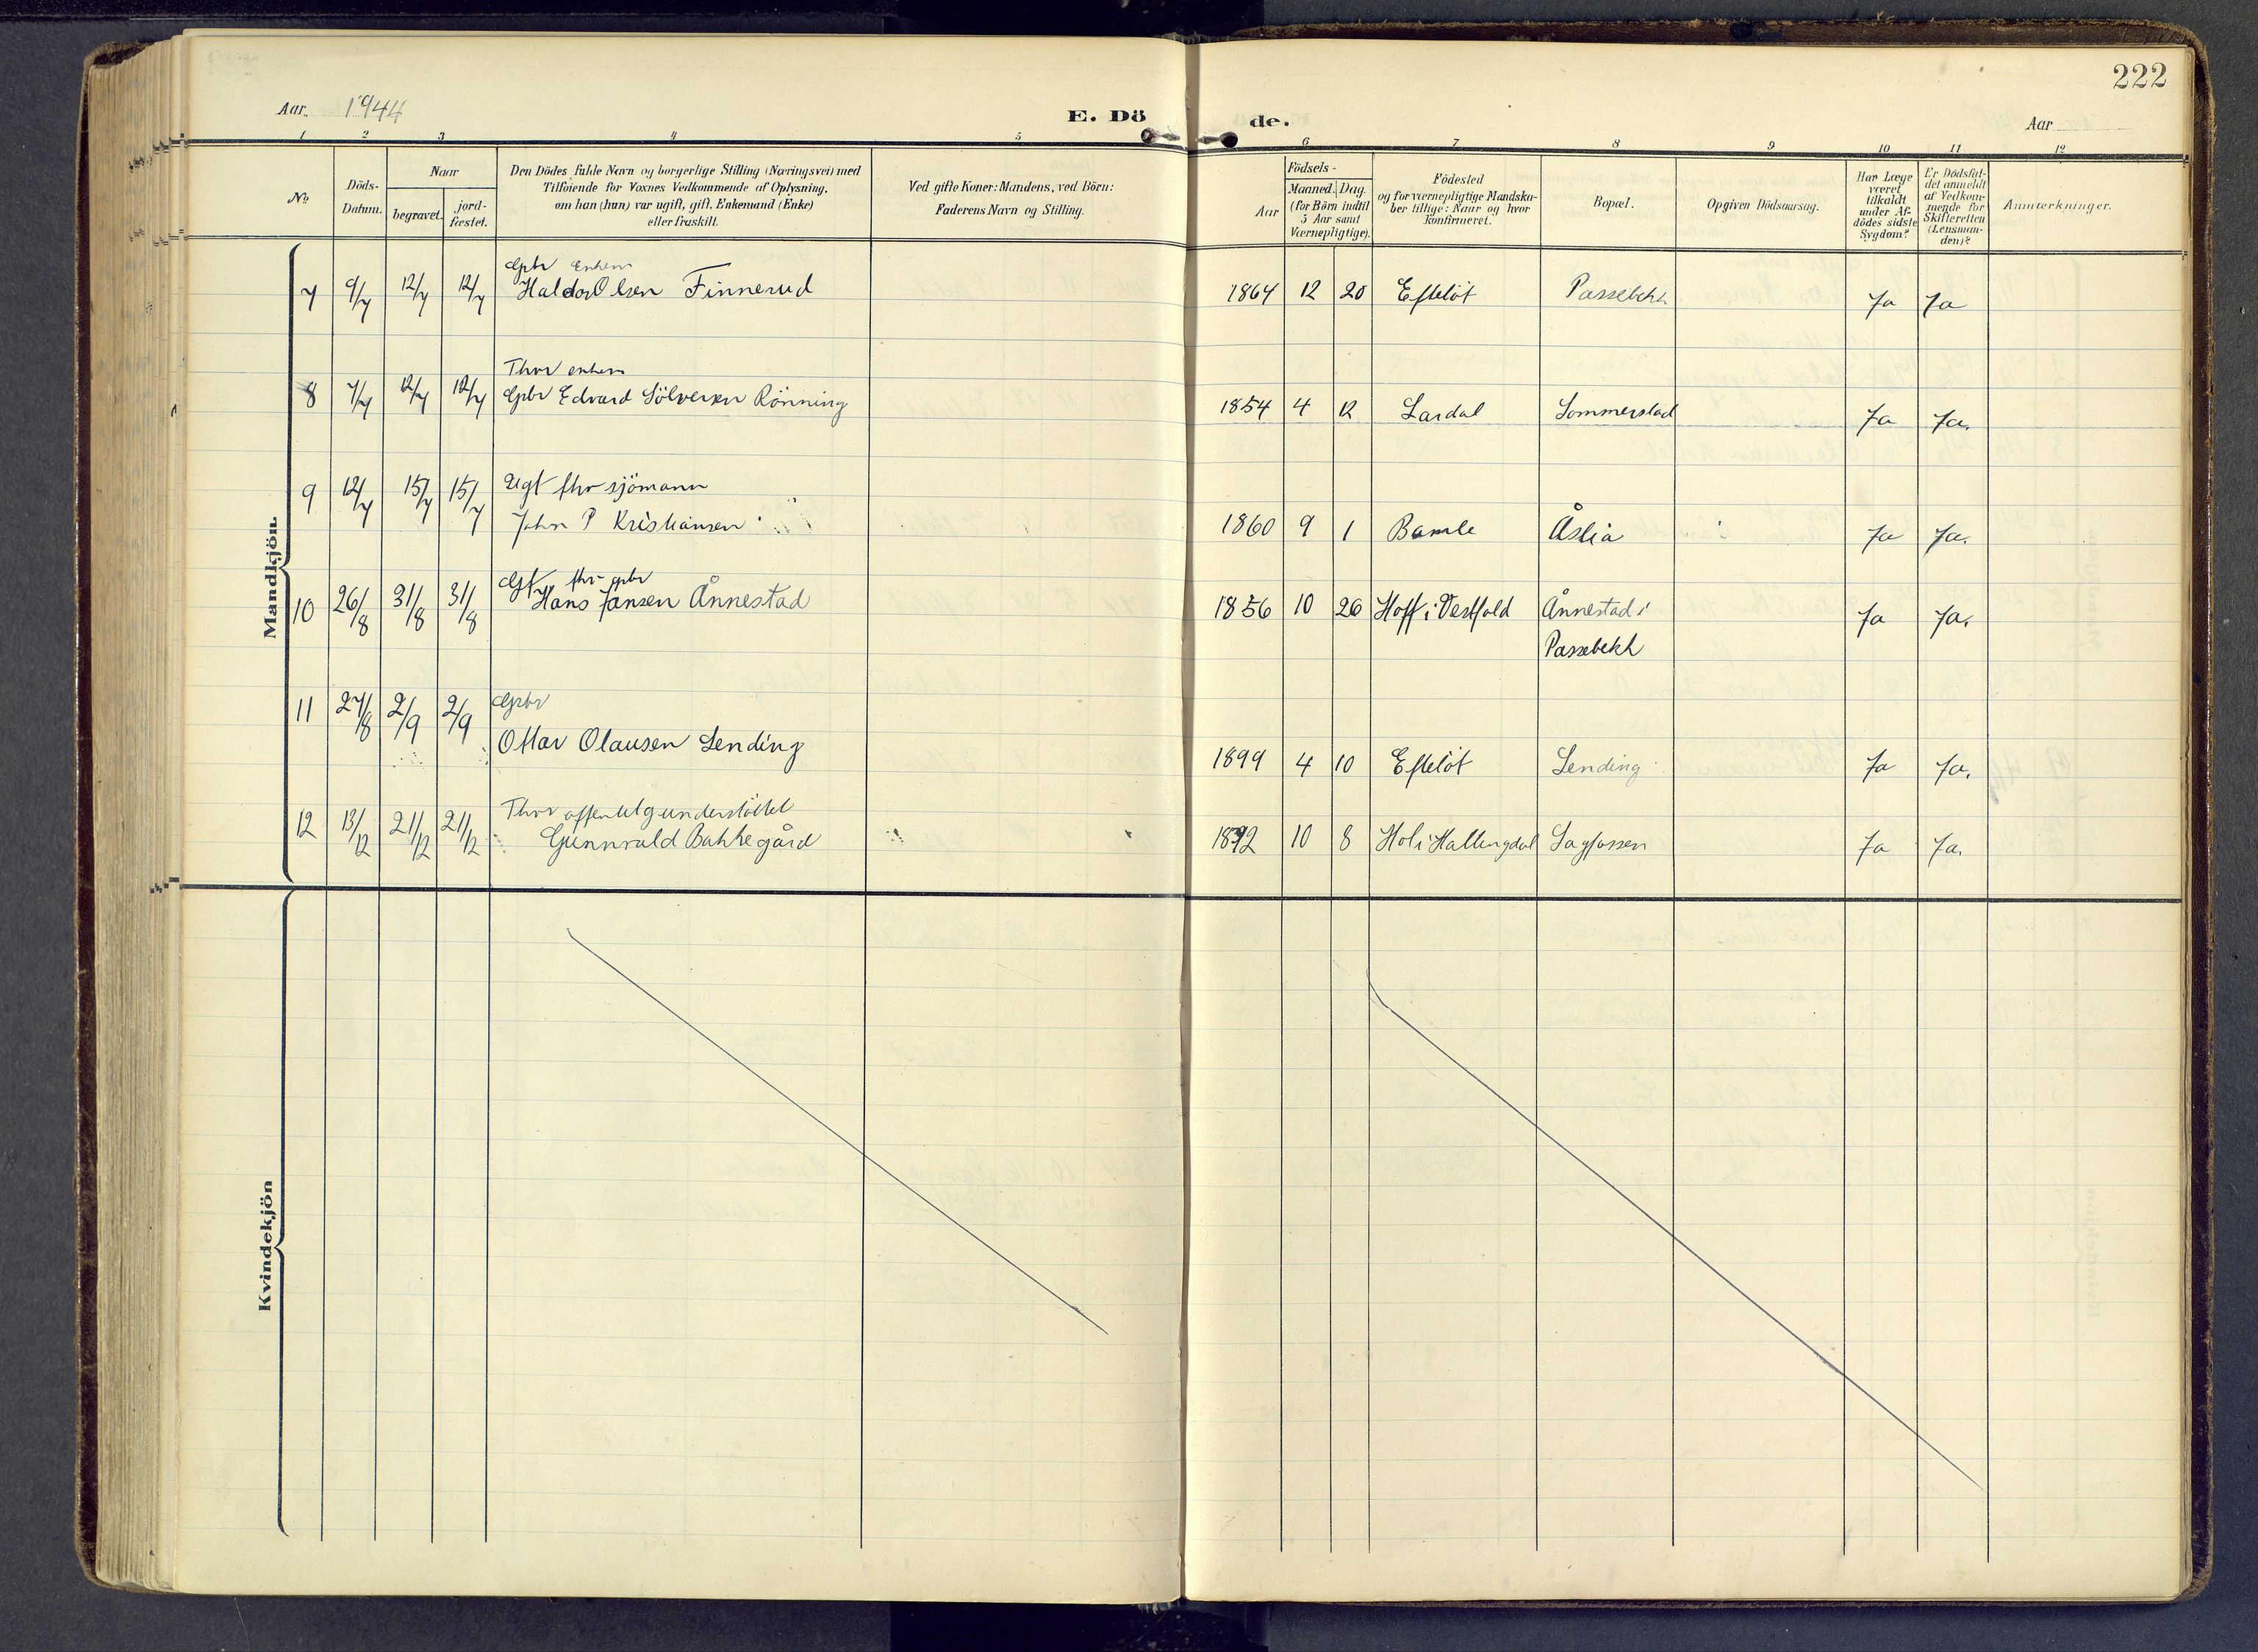 222
Aar 1944
E. Dö de.
Aar
1 2 3 4 5 6 7 8 9 10 11 12
No.
Döds-
Datum.
Naar
begravet.
jord-
fæstet.
Den Dödes fulde Navn og borgerlige Stilling (Næringsvei) med
Tilföiende for Voxnes Vedkommende af Oplysning,
om han (hun) var ugift, gift, Enkemand (Enke)
eller fraskilt.
Ved gifte Koner: Mandens, ved Börn:
Faderens Navn og Stilling.
Födsels-
Aar
Maaned. Dag.
(for Börn indtil
5 Aar samt
Værnepligtige).
Födested
og for værnepligtige Mandska-
ber tillige: Naar og hvor
konfirmeret.
Bopæl.
Opgiven Dödsaarsag.
Har Læge
været
tilkaldt
under Af-
dödes sidste
Sygdom?
Er Dödsfal-
det anmeldt
af Vedkom-
mende for
Skifteretten
(Lensman-
den)?
Anmærkninger.
Mandkjön.
Gbr Enkem
7 9/7 12/7 12/7 Haldor Olsen Finnerud 1864 12 20 Efteløt Passebekk Ja Ja
Fhv enkem
8 7/7 12/7 12/7 Gbr Edvard Sölversen Rönning 1854 4 12 Lardal Sommerstad Ja Ja.
Ugt fhv sjömann
9 12/7 15/7 15/7 John P Kristiansen 1860 9 1 Bamle Åslia Ja Ja.
Gt fhv gbr
10 26/8 31/8 31/8 Hans Jansen Ånnestad 1856 10 26 Hoff i Vestfold Ånnestad i Ja Ja.
Passebekk
Gbr
11 27/8 2/9 2/9 Ottar Olausen Lending 1899 4 10 Efteløt Lending Ja Ja.
Fhv offentlig understöttet
12 13/12 21/12 21/12 Gunnvald Bakkegård 1892 10 8 Hol i Hallingdal Sagfossen Ja Ja.
Kvindekjön